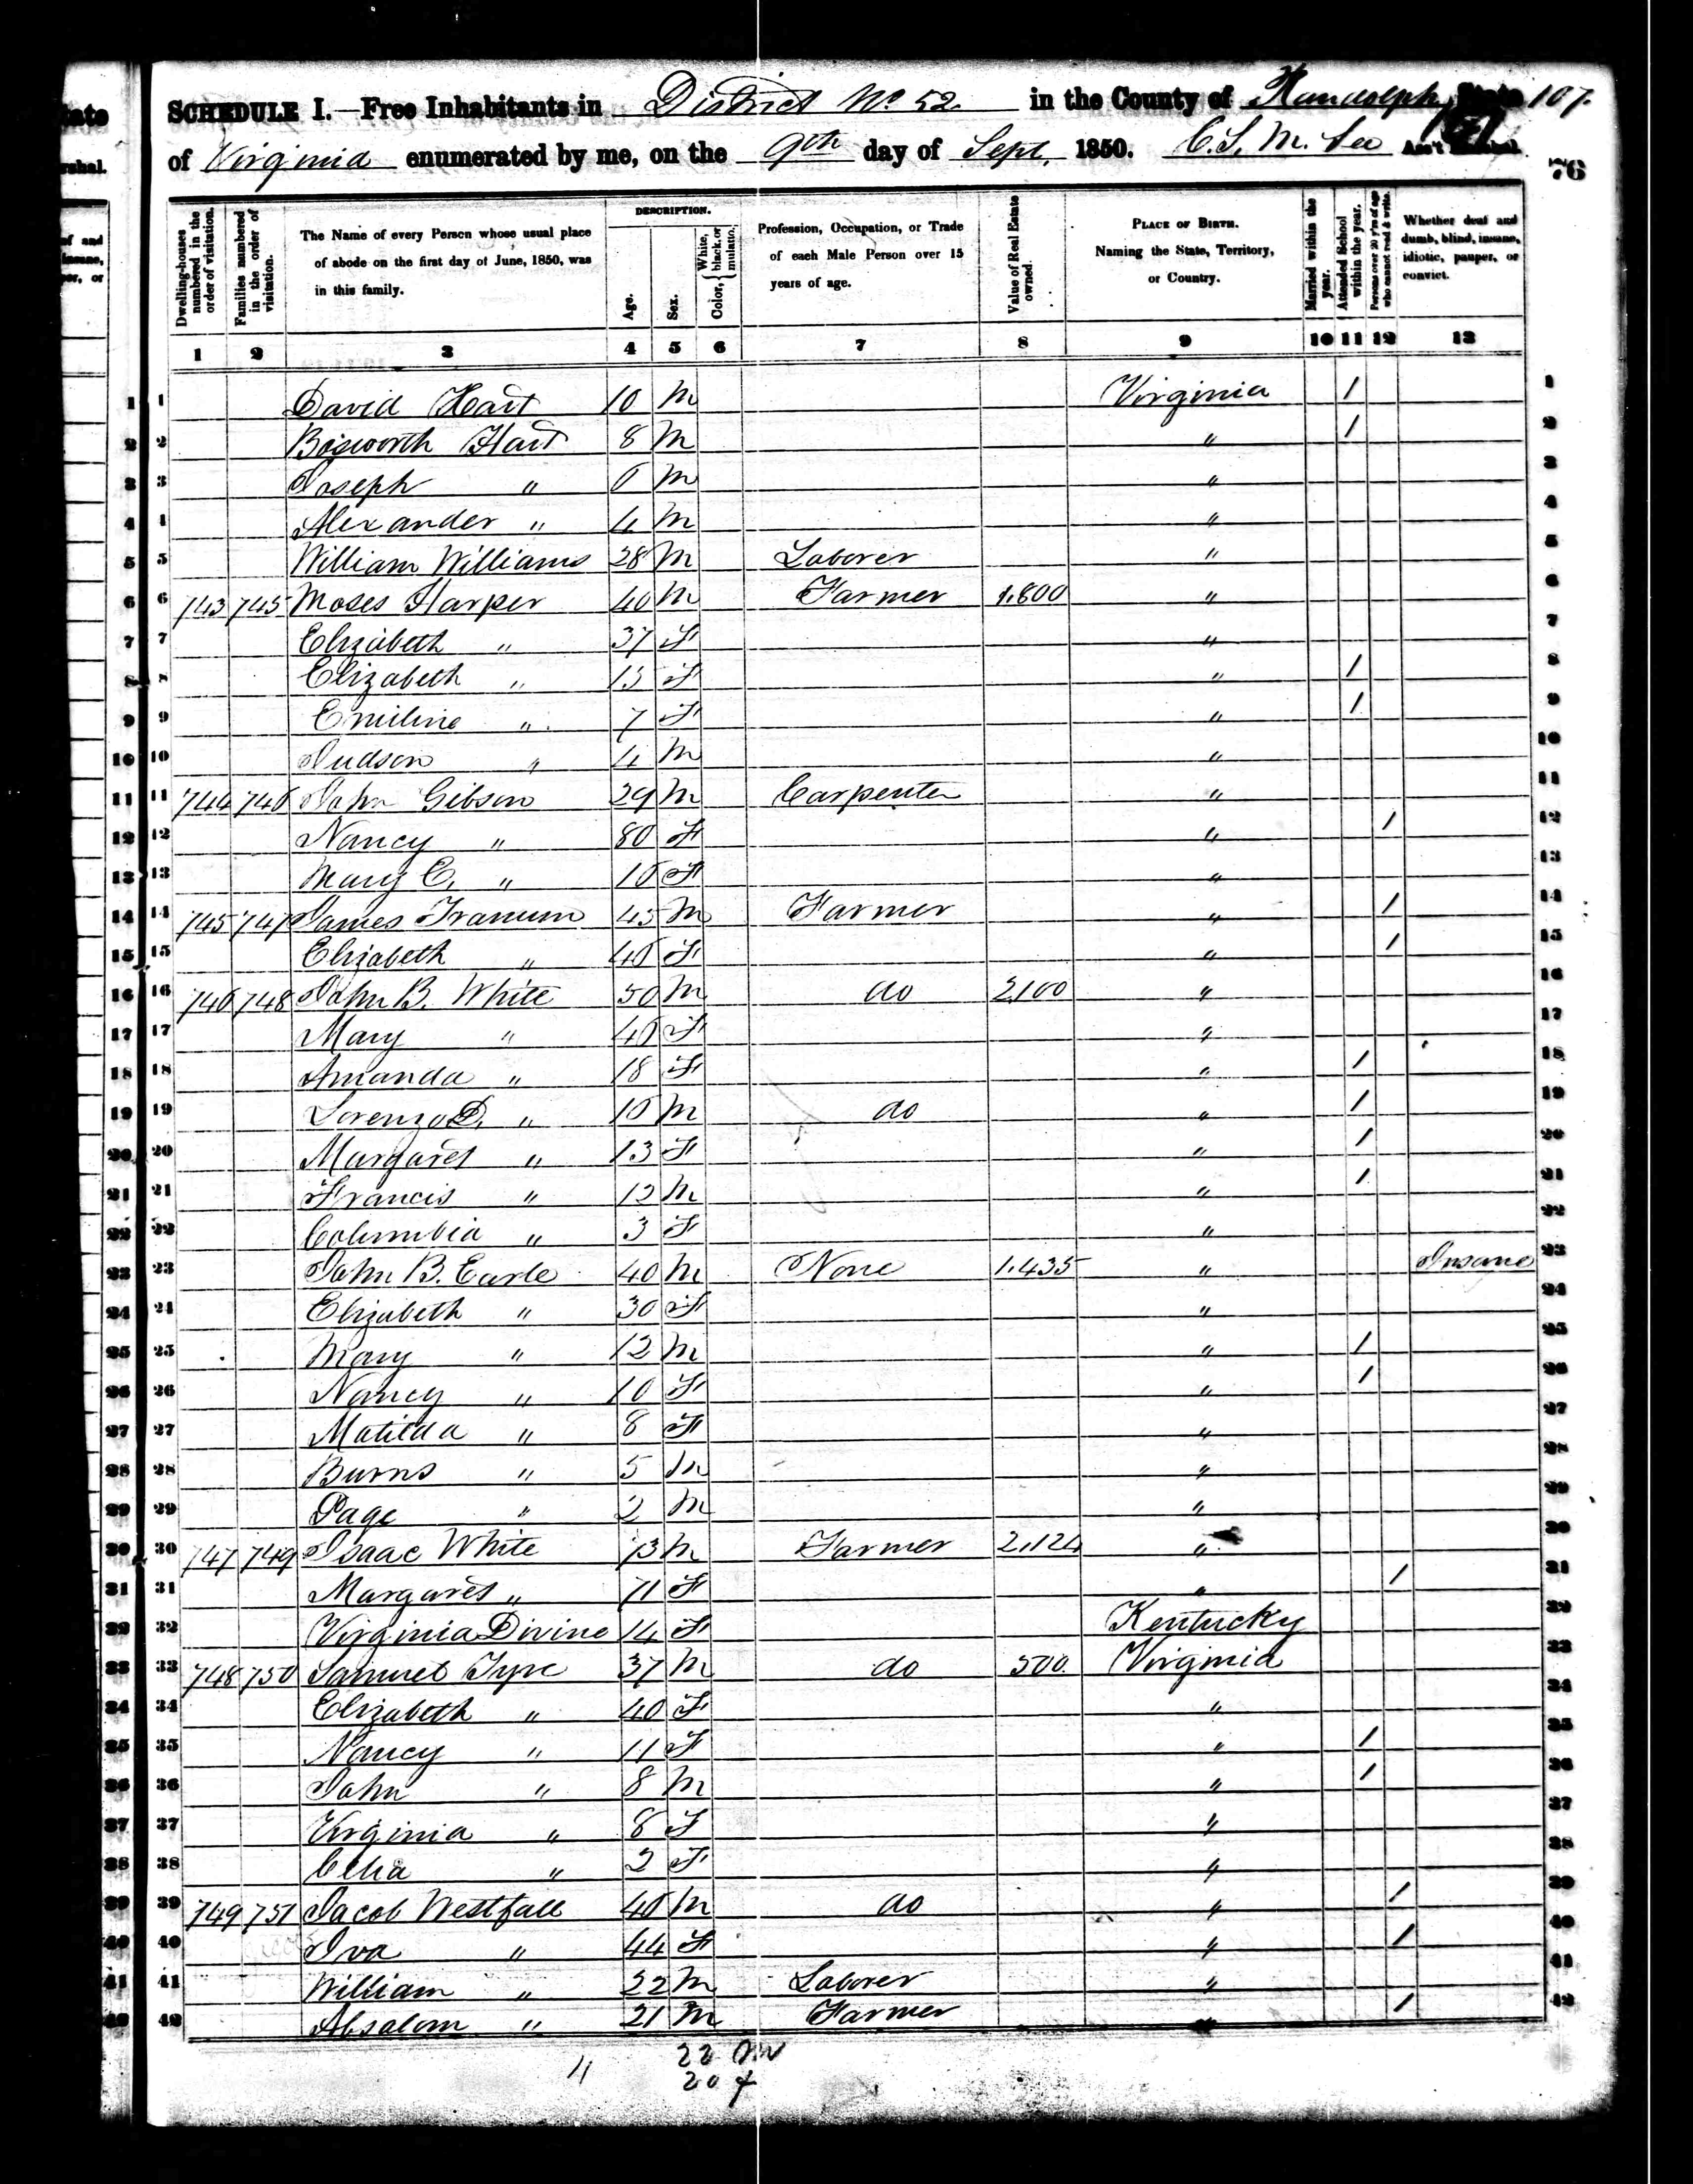 SCHEDULE I.—Free Inhabitants in District No 52. in the County of Randolph State 107.
of Virginia enumerated by me, on the 9th day of Sept. 1850. Ass't Marshal. 76
Dwelling-houses numbered in the order of visitation.
Families numbered in the order of visitation.
The Name of every Person whose usual place of abode on the first day of June, 1850, was in this family.
DESCRIPTION.
Age.
Sex.
Color, { White, black, or mulatto.
Profession, Occupation, or Trade of each Male Person over 15 years of age.
Value of Real Estate owned.
PLACE OF BIRTH. Naming the State, Territory, or Country.
Married within the year.
Attended School within the year.
Persons over 20 y'rs of age who cannot read & write.
Whether deaf and dumb, blind, insane, idiotic, pauper, or convict.
1 2 3 4 5 6 7 8 9 10 11 12 13
1 1 David Hart 10 M Virginia / 1
2 2 Bosworth Hart 8 M " / 2
3 3 Joseph " 6 M " 3
4 4 Alexander " 4 M " 4
5 5 William Williams 28 M Laborer " 5
6 6 743 745 Moses Harper 40 M Farmer 1.800 " 6
7 7 Elizabeth " 37 F " 7
8 8 Elizabeth " 13 F " / 8
9 9 Emiline " 7 F " / 9
10 10 Judson " 4 M " 10
11 11 744 746 John Gibson 29 M Carpenter " 11
12 12 Nancy " 80 F " / 12
13 13 Mary C. " 16 F " 13
14 14 745 747 James Tranum 45 M Farmer " / 14
15 15 Elizabeth " 46 F " / 15
16 16 746 748 John B. White 50 M do 2,100 " 16
17 17 Mary " 46 F " 17
18 18 Amanda " 18 F " / 18
19 19 Lorenzo D. " 16 M do " / 19
20 20 Margaret " 13 F " / 20
21 21 Francis " 12 M " / 21
22 22 Columbia " 3 F " 22
23 23 John B. Earle 40 M None 1.435 " Insane 23
24 24 Elizabeth " 30 F " 24
25 25 Mary " 12 M " / 25
26 26 Nancy " 10 F " / 26
27 27 Matilda " 8 F " 27
28 28 Burns " 5 M " 28
29 29 Page " 2 M " 29
30 30 747 749 Isaac White 73 M Farmer 2,124 " 30
31 31 Margaret " 71 F " / 31
32 32 Virginia Divine 14 F Kentucky 32
33 33 748 750 Samuel Tyre 37 M do 500. Virginia 33
34 34 Elizabeth " 40 F " 34
35 35 Nancy " 11 F " / 35
36 36 John " 8 M " / 36
37 37 Virginia " 8 F " 37
38 38 Celia " 2 F " 38
39 39 749 751 Jacob Westfall 46 M do " / 39
40 40 Iva " 44 F " / 40
41 41 William " 22 M Laborer " 41
42 42 Absalom " 21 M Farmer " / 42
11 22 m
20 f